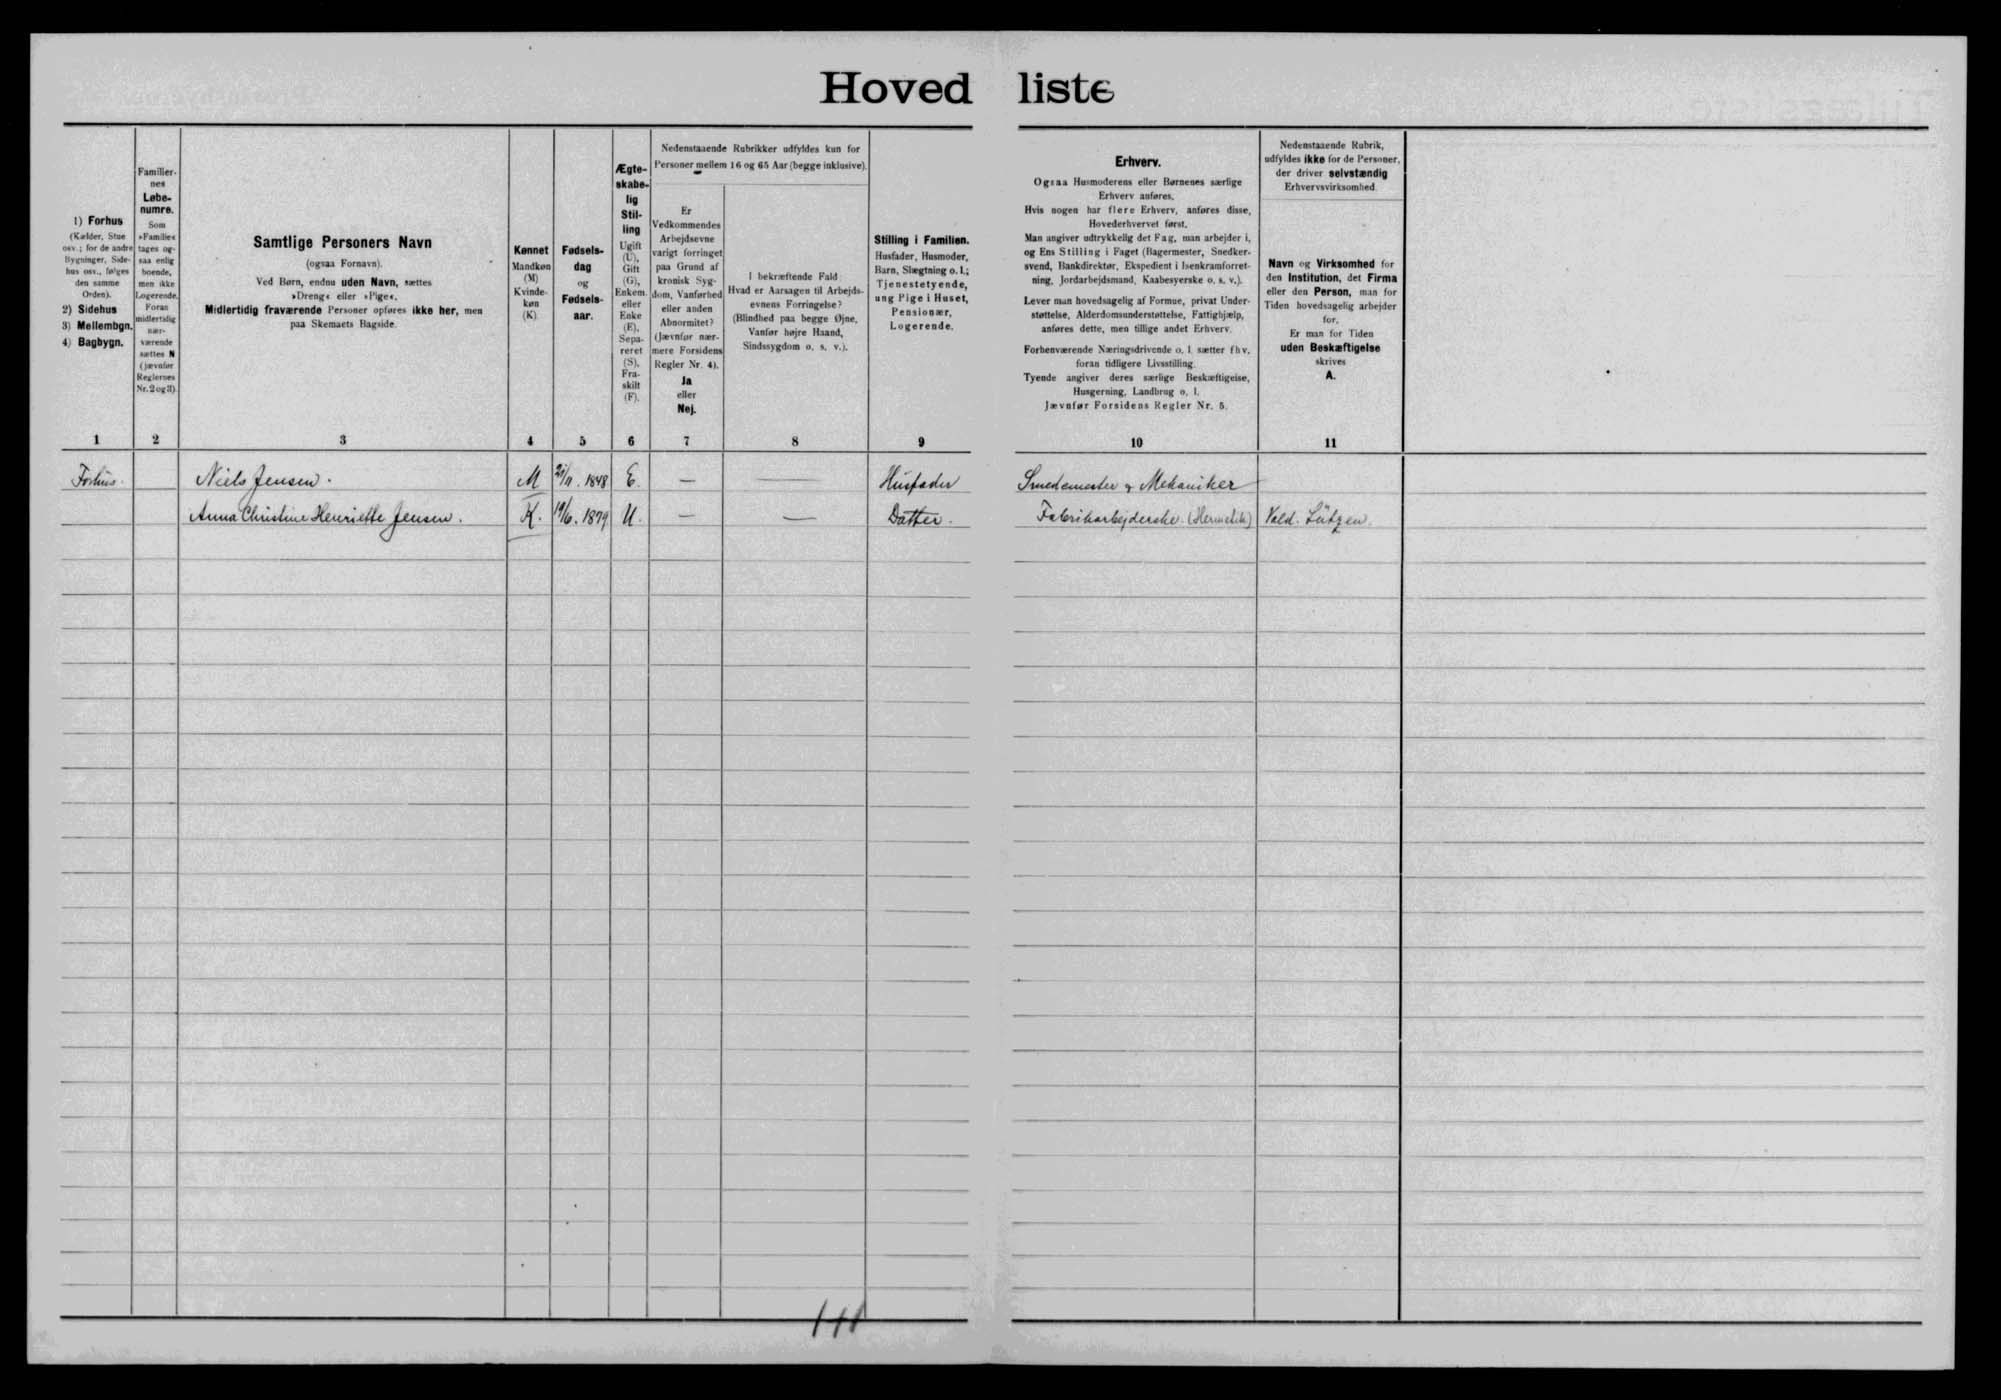 Hoved liste
1) Forhus
(Kælder, Stue
osv.; for de andre
Bygninger, Side-
hus osv., følges
den samme
Orden).
2) Sidehus
3) Mellembgn.
4) Bagbygn.
Familier-
nes
Løbe-
numre.
Som
»Familie«
tages og-
saa enlig
boende,
men ikke
Logerende.
Foran
midlertidig
nær-
værende
sættes N
(jævnfør
Reglernes
Nr. 2 og 3).
Samtlige Personers Navn
(ogsaa Fornavn).
Ved Børn, endnu uden Navn, sættes
»Dreng« eller »Pige«.
Midlertidig fraværende Personer opføres ikke her, men
paa Skemaets Bagside.
Kønnet
Mandkøn
(M)
Kvinde-
køn
(K)
Fødsels-
dag
og
Fødsels-
aar.
Ægte-
skabe-
lig
Stil-
ling
Ugift
(U),
Gift
(G),
Enkem.
eller
Enke
(E),
Sepa-
reret
(S),
Fra-
skilt
(F).
Nedenstaaende Rubrikker udfyldes kun for
Personer mellem 16 og 65 Aar (begge inklusive).
Er
Vedkommendes
Arbejdsevne
varigt forringet
paa Grund af
kronisk Syg-
dom, Vanførhed
eller anden
Abnormitet?
(Jævnfør nær-
mere Forsidens
Regler Nr. 4).
Ja
eller
Nej.
I bekræftende Fald:
Hvad er Aarsagen til Arbejds-
evnens Forringelse?
(Blindhed paa begge Øjne,
Vanfør højre Haand,
Sindssygdom o. s. v.).
Stilling i Familien.
Husfader, Husmoder,
Barn, Slægtning o. l.;
Tjenestetyende,
ung Pige i Huset,
Pensionær,
Logerende.
Erhverv.
Ogsaa Husmoderens eller Børnenes særlige
Erhverv anføres.
Hvis nogen har flere Erhverv, anføres disse,
Hovederhvervet først.
Man angiver udtrykkelig det Fag, man arbejder i,
og Ens Stilling i Faget (Bagermester, Snedker-
svend, Bankdirektør, Ekspedient i Isenkramforret-
ning, Jordarbejdsmand, Kaabesyerske o. s. v.).
Lever man hovedsagelig af Formue, privat Under-
støttelse, Alderdomsunderstøttelse, Fattighjælp,
anføres dette, men tillige andet Erhverv.
Forhenværende Næringsdrivende o. l. sætter fhv.
foran tidligere Livsstilling.
Tyende angiver deres særlige Beskæftigelse,
Husgerning, Landbrug o. l.
Jævnfør Forsidens Regler Nr. 5.
Nedenstaaende Rubrik,
udfyldes ikke for de Personer,
der driver selvstændig
Erhvervsvirksomhed.
Navn og Virksomhed for
den Institution, det Firma
eller den Person, man for
Tiden hovedsagelig arbejder
for.
Er man for Tiden
uden Beskæftigelse
skrives
A.
1 2 3 4 5 6 7 8 9 10 11
Forhus. Niels Jensen. M 1848 E. — — Husfader Smedemester & Mekaniker
Anna Christine Henriette Jensen. K. 19/6. 1879 U. — — Datter. Fabrikarbejderske. (Hermetik) Vald. Lützen.